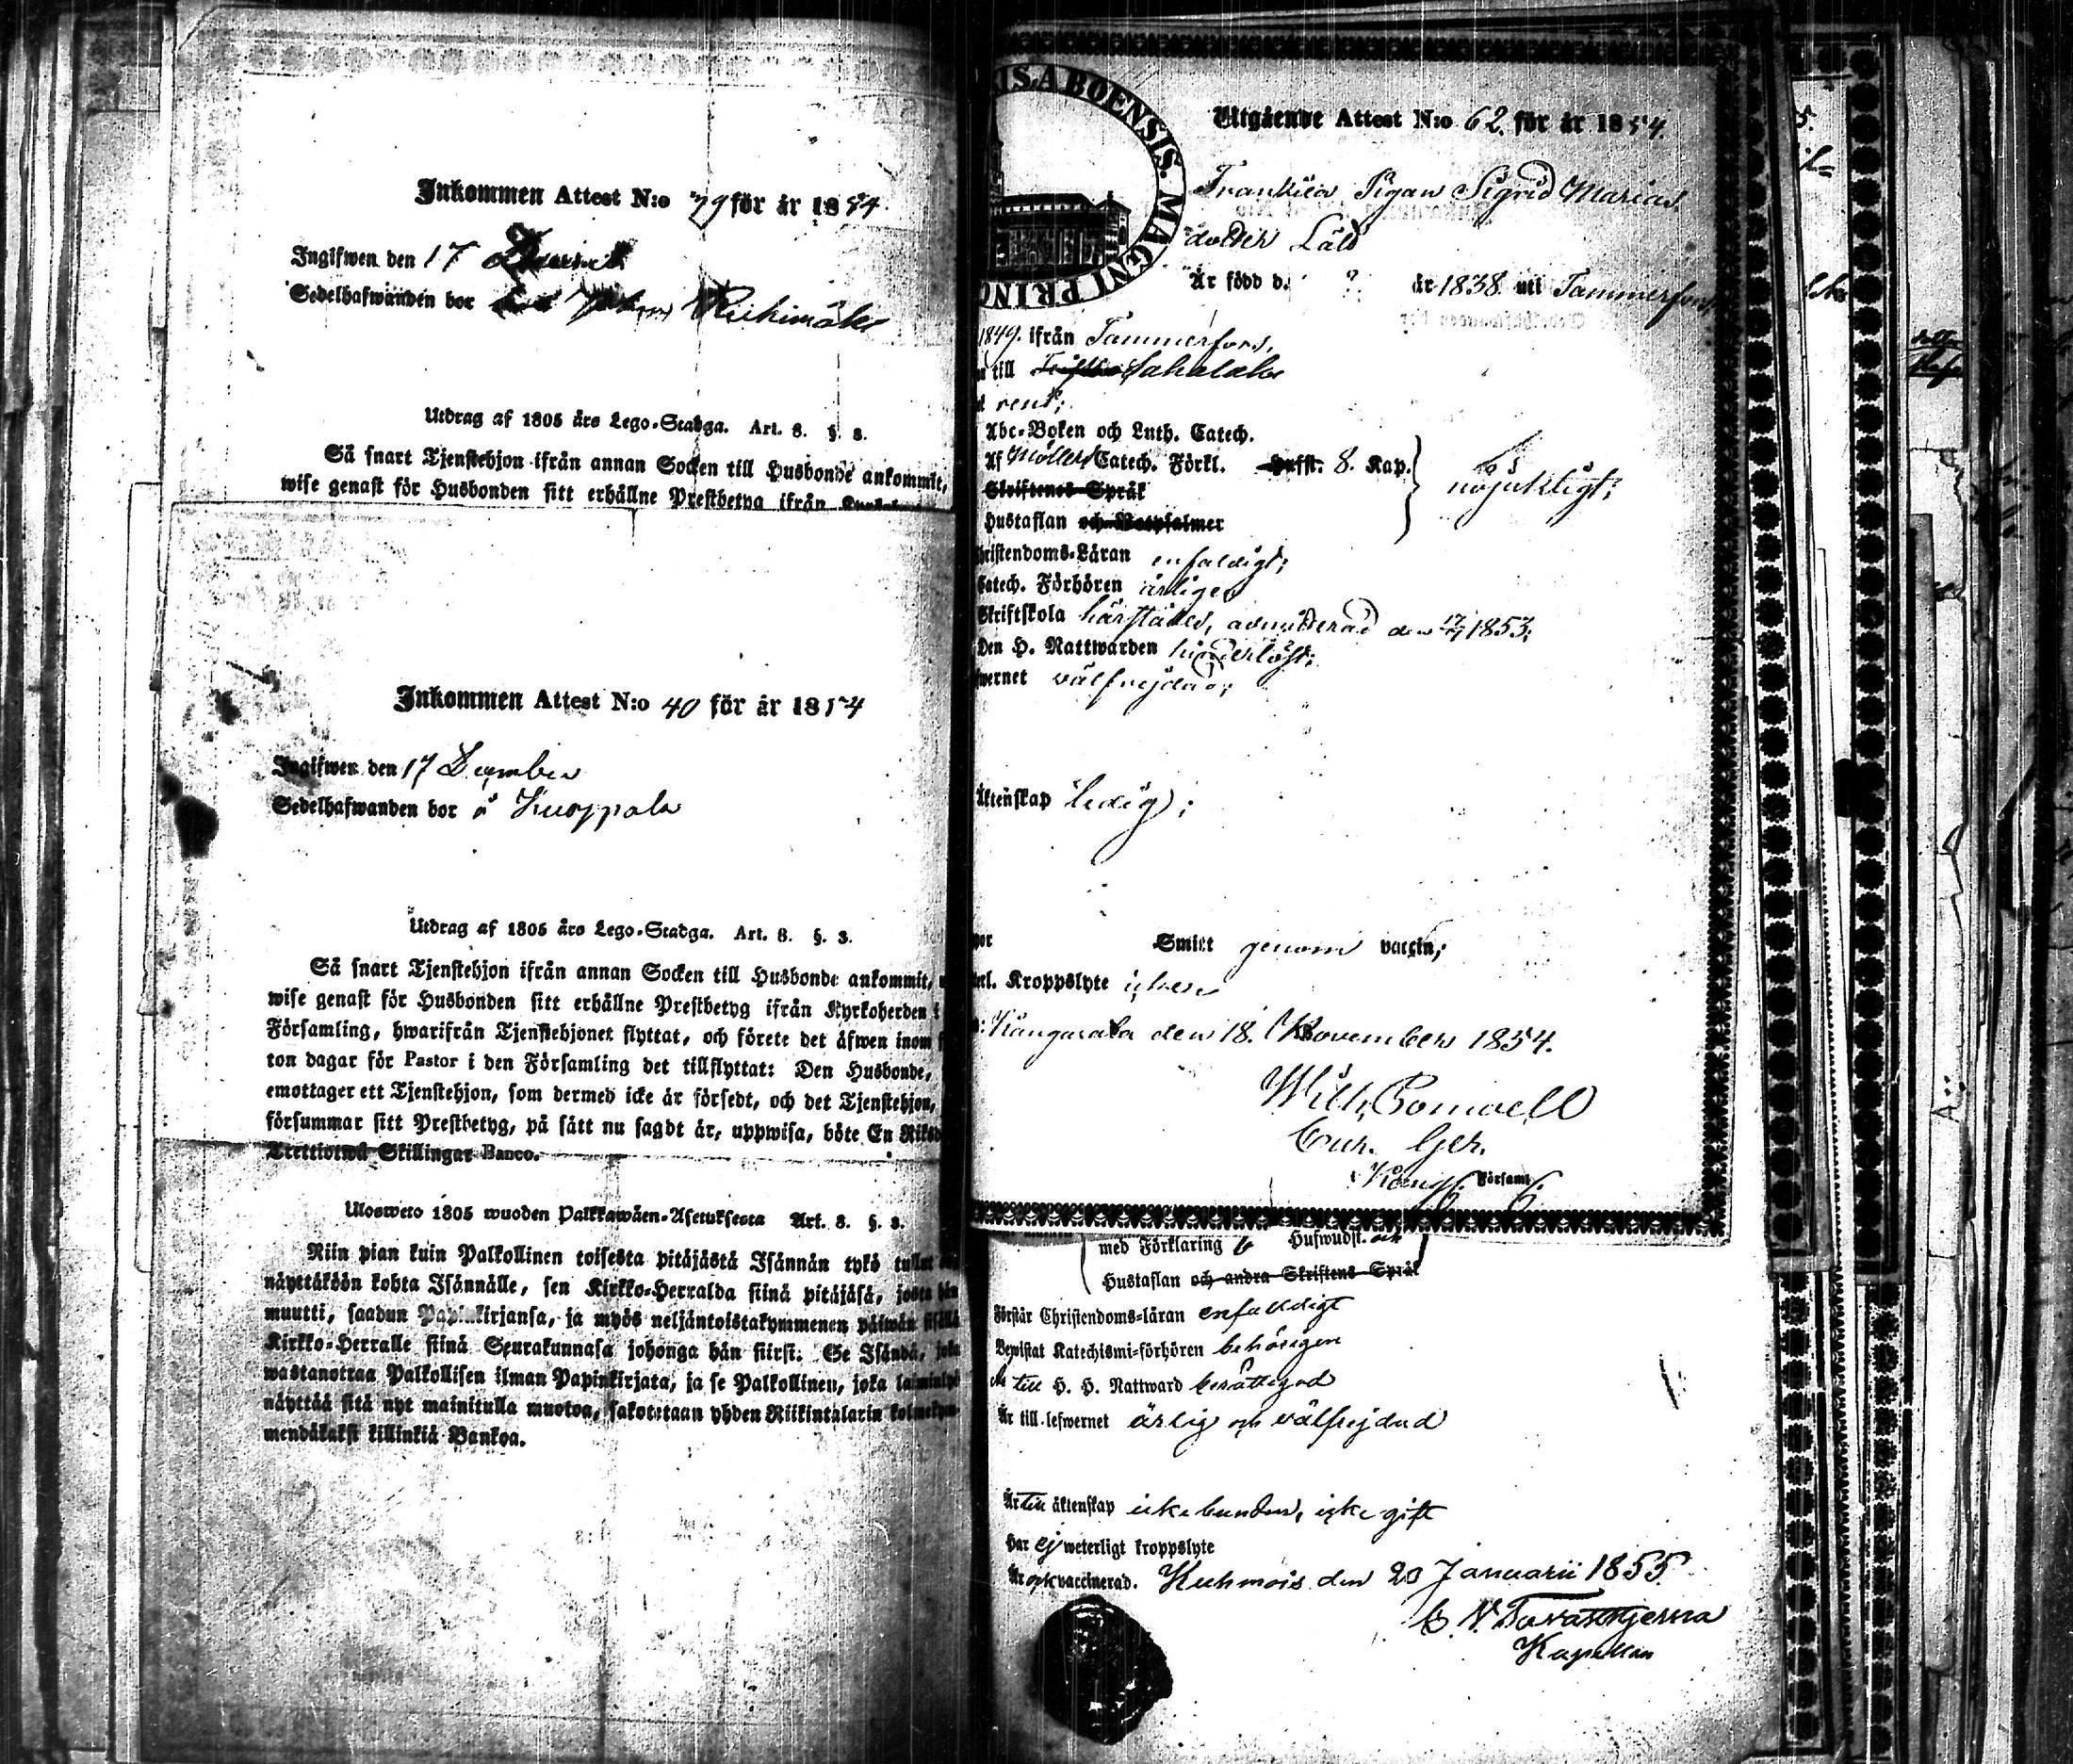 Inkommen Attest N:o 79 för år 1854.
Ingifwen den 17
Sedelhafwanden bor Riihimäki
Utdrag af 1805 års Lego-Stadga. Art. 8. §. 3.
Så snart Tjenstehjon ifrån annan Socken till Husbonde ankommit,
wise genast för Husbonden sitt erhållne Prestbetyg ifrån
Inkommen Attest N:o 40 för år 1854
Ingifwen den 17 December
Sedelhafwanden bor å Kuoppala
Utdrag af 1805 års Lego-Stadga. Art. 8. §. 3.
Så snart Tjenstehjon ifrån annan Socken till Husbonde ankommit,
wise genast för Husbonden sitt erhållne Prestbetyg ifrån Kyrkoherden i
Församling, hwarifrån Tjenstehjonet flyttat, och förete det äfwen inom
ton dagar för Pastor i den Församling det tillflyttat: Den Husbonde,
emottager ett Tjenstehjon, som dermed icke är försedt, och det Tjenstehjon,
försummar sitt Prestbetyg, på sätt nu sagdt är, uppwisa, böte En Riksd
Trettiotwå Skillingar Banco.
Ulosweto 1805 wuoden Palkkawäen-Asetuksesta Art. 8. §. 3.
Niin pian kuin Palkollinen toisesta pitäjästä Isännän tykö tullut
näyttäköön kohta Isännälle, sen Kirkko-Herralda siinä pitäjäsä, josta hän
muutti, saadun Papinkirjansa, ja myös neljäntoistakymmenen päiwän sisällä
Kirkko-Herralle siinä Seurakunnasa johonga hän siirsi: Se Isändä, joka
wastanottaa Palkollisen ilman Papinkirjata, ja se Palkollinen, joka laiminlyö
näyttää sitä nyt mainitulla muotoa, sakotetaan yhden Riikintalarin kolmekym-
mendäkaksi killinkiä Bankoa.
IS ABOENSIS. MAGNI PRINC
Utgående Attest N:o 62. för år 1854.
Frankila Pigan Sigrid Marias
dotter Läld
Är född d. ? år 1838. uti Tammerfors,
1849. ifrån Tammerfors,
till Sahalaks
rent;
Abc-Boken och Luth. Catech.
Af Möllers Catech. Förkl. Hufst. 8. Kap.
Skriftenes Språk
Hustaflan och Botpsalmer
nöjaktligt;
hristendoms-Läran enfaldigt;
Catech. Förhören årligen
Skriftskola härstädes, admitterad den 17/7 1853;
Den H. Nattwarden hinderlöst;
fwernet välfrejdad;
Äktenskap ledig;
Smitt genom vaccin;
terl. Kroppslyte icke
Kangasala den 18. November 1854.
Wilh. Bomoell
Cur. Ger.
Kang. Församl.
med Förklaring 6 Hufwudst. och
Hustaflan och andra Skriftens Språk
Förstår Christendoms-läran enfaldigt
Bewistat Katechismi-förhören behörigen
Är till H. H. Nattward berättigad
Är till lefwernet ärlig och välfrejdad
Är till äktenskap icke bunden, icke gift
Har ej weterligt kroppslyte
Är ock vaccinerad. Kuhmois den 20 Januarii 1855.
C. N. Tavaststjerna
Kapellan